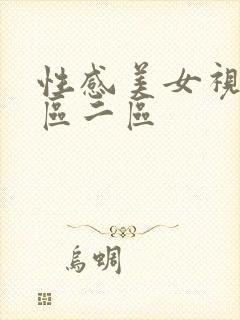 性感美女視
區二區
烏蜩